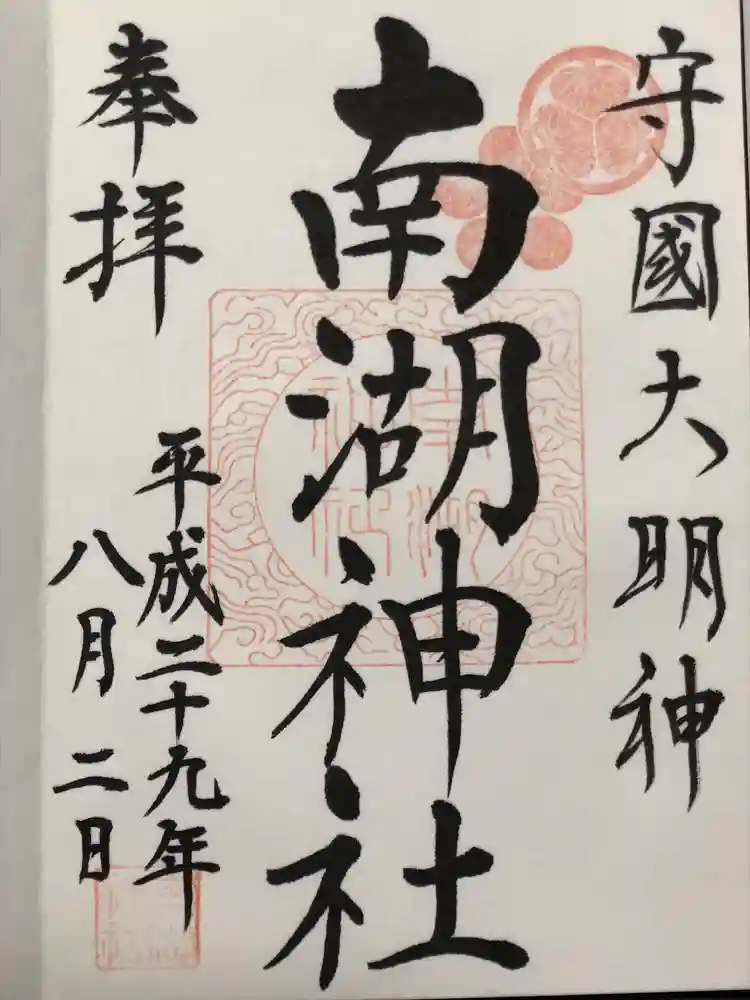 守國大明神
南湖神社
奉拝
平成二十九年
八月二日
南湖神社